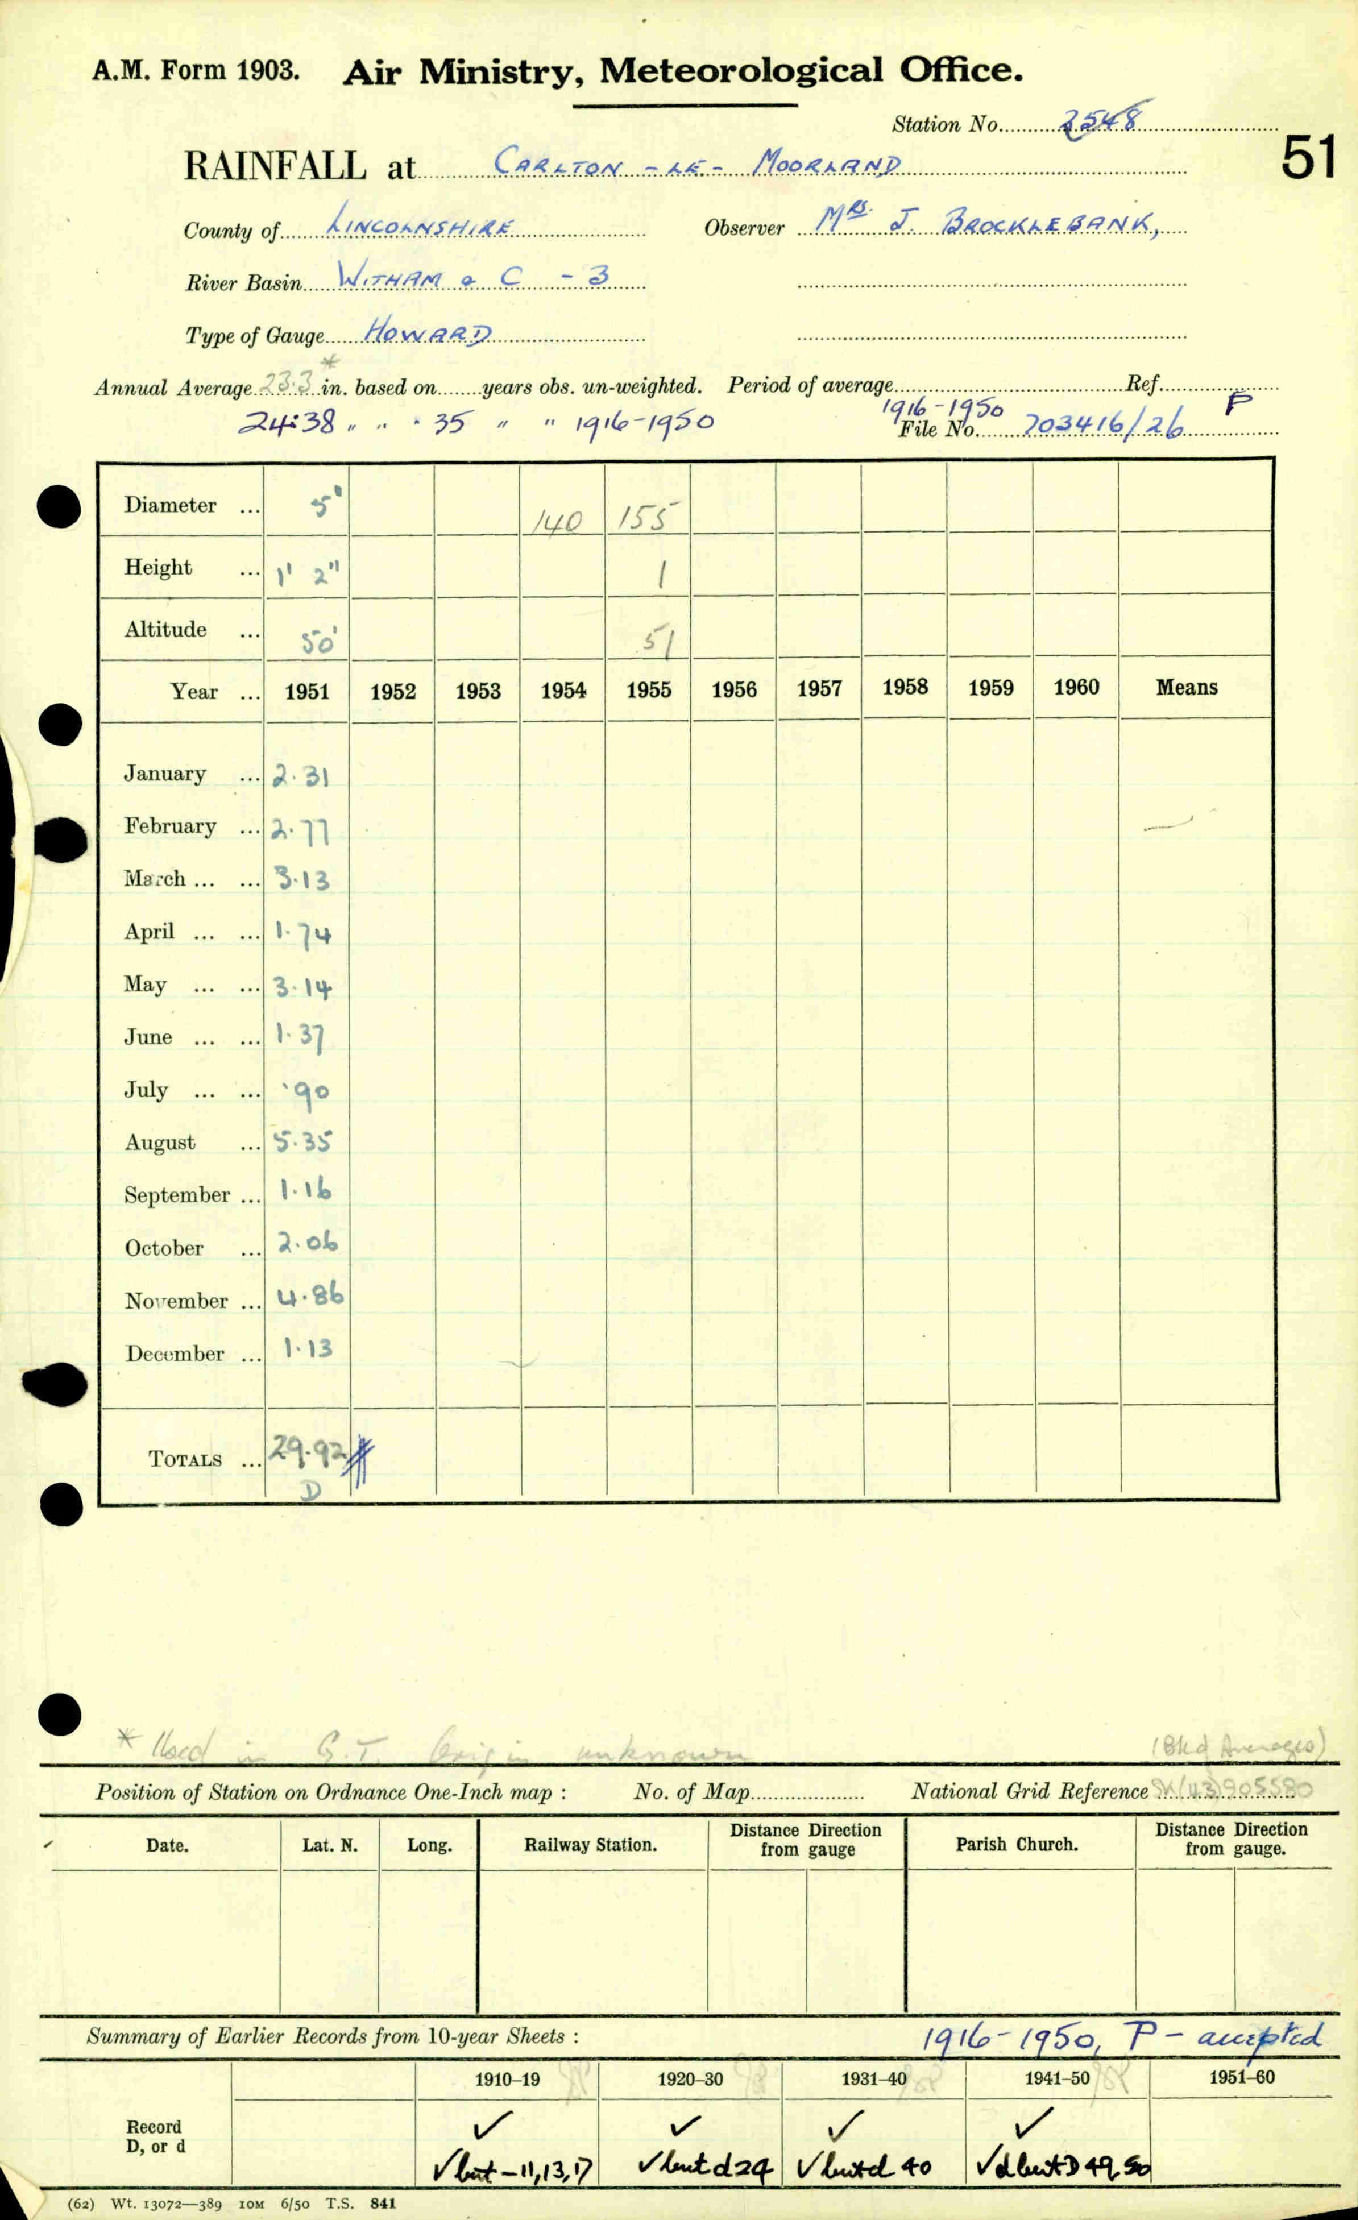 A.M. Form 1903. Air Ministry, Meteorological Office.
Station No. 2548
51
RAINFALL at CARLTON - LE - MOORLAND
County of LINCOLNSHIRE Observer MRS. J. BROCKLEBANK,
River Basin WITHAM & C - 3
Type of Gauge HOWARD
Annual Average 23.3* in. based on years obs. un-weighted. Period of average 1916-1950 Ref. P
24.38 " " 35 " " 1916-1950 File No. 703416/26
Diameter ... 5" 140 155
Height ... 1' 2" 1
Altitude ... 50' 51
Year ... 1951 1952 1953 1954 1955 1956 1957 1958 1959 1960 Means
January ... 2.31
February ... 2.77
March ... ... 3.13
April ... ... 1.74
May ... ... 3.14
June ... ... 1.37
July ... ... .90
August ... 5.35
September ... 1.16
October ... 2.06
November ... 4.86
December ... 1.13
TOTALS ... 29.92
D
* Used in G.T. Origin unknown (Bkd Averages)
Position of Station on Ordnance One-Inch map : No. of Map National Grid Reference SK(43)905580
Date. Lat. N. Long. Railway Station. Distance from Direction gauge Parish Church. Distance from Direction gauge.
Summary of Earlier Records from 10-year Sheets : 1916-1950, P - accepted
1910–19 1920–30 1931–40 1941–50 1951–60
Record ✓ ✓ ✓ ✓
D, or d ✓ but - 11, 13, 17 ✓ but d 29 ✓ but d 40 ✓ d but D 49, 50
(62) Wt. 13072—389 10M 6/50 T.S. 841